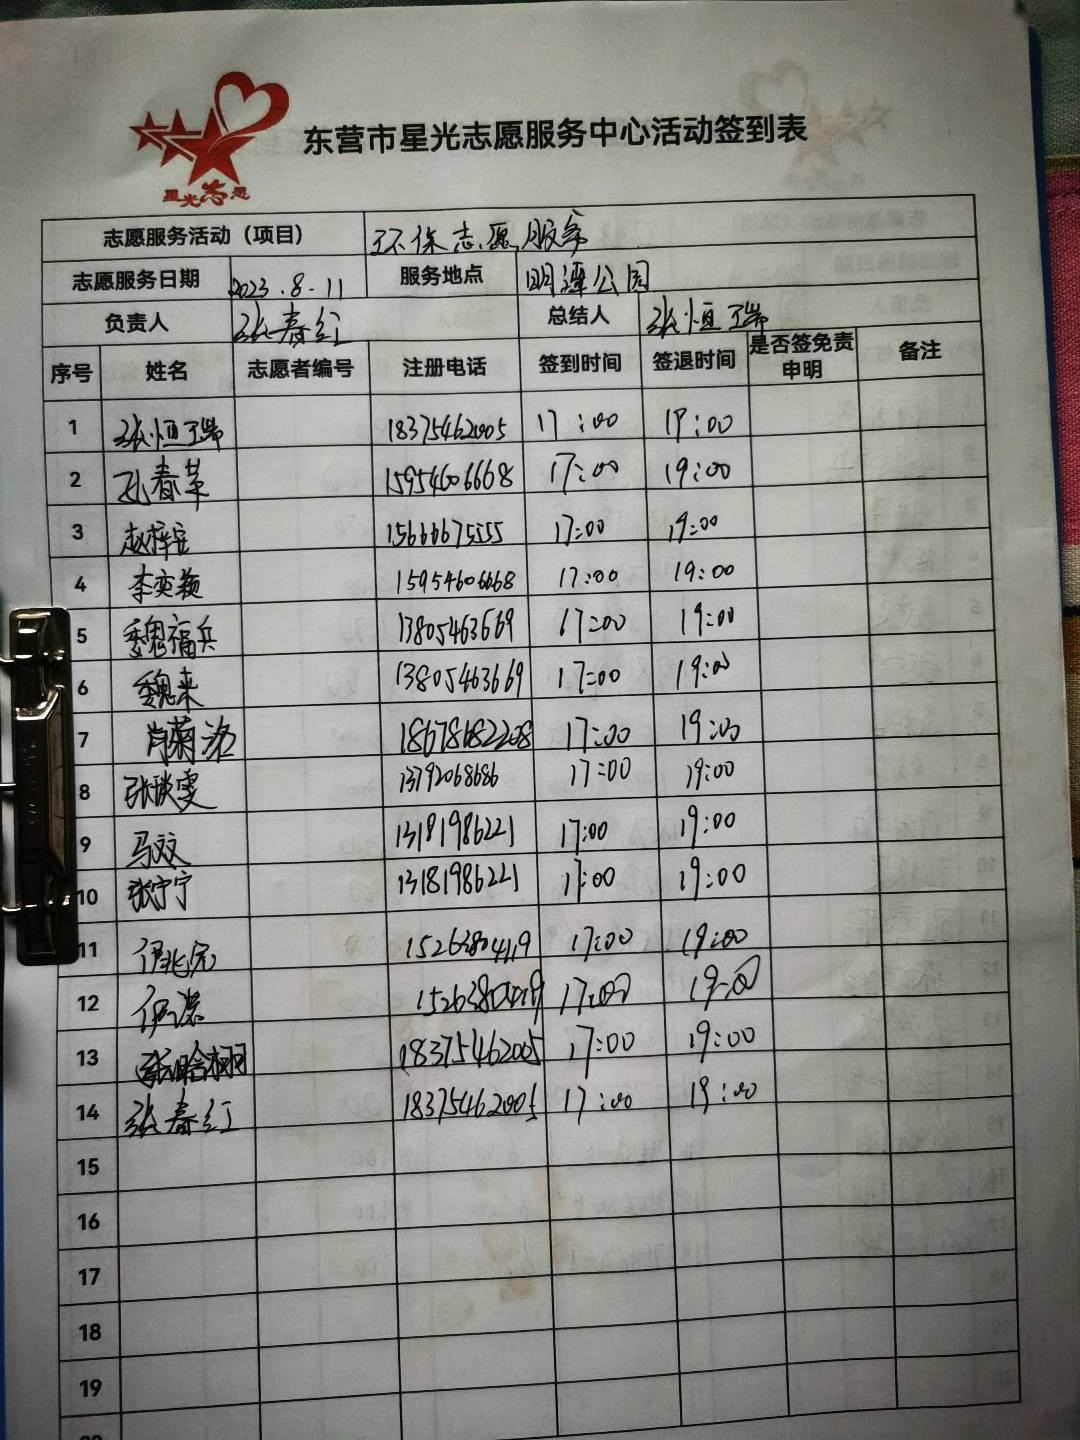 星光志愿
东营市星光志愿服务中心活动签到表
志愿服务活动（项目） 环保志愿服务
志愿服务日期 2023.8.11 服务地点 明潭公园
负责人 张春红 总结人 张恒瑞
序号 姓名 志愿者编号 注册电话 签到时间 签退时间 是否签免责申明 备注
1 张恒瑞 18375462005 17:00 19:00
2 孙春苹 15954606668 17:00 19:00
3 赵梓 15666675555 17:00 19:00
4 李奕颖 15954606668 17:00 19:00
5 魏福兵 13805463669 17:00 19:00
6 魏来 13805463669 17:00 19:00
7 肖菊 18678682208 17:00 19:00
8 张雯 13792068686 17:00 19:00
9 马双 13181986221 17:00 19:00
10 张宁宁 13181986221 17:00 19:00
11 15263804119 17:00 19:00
12 17:00 19:00
13 18375462005 17:00 19:00
14 张春红 18375462005 17:00 19:00
15
16
17
18
19